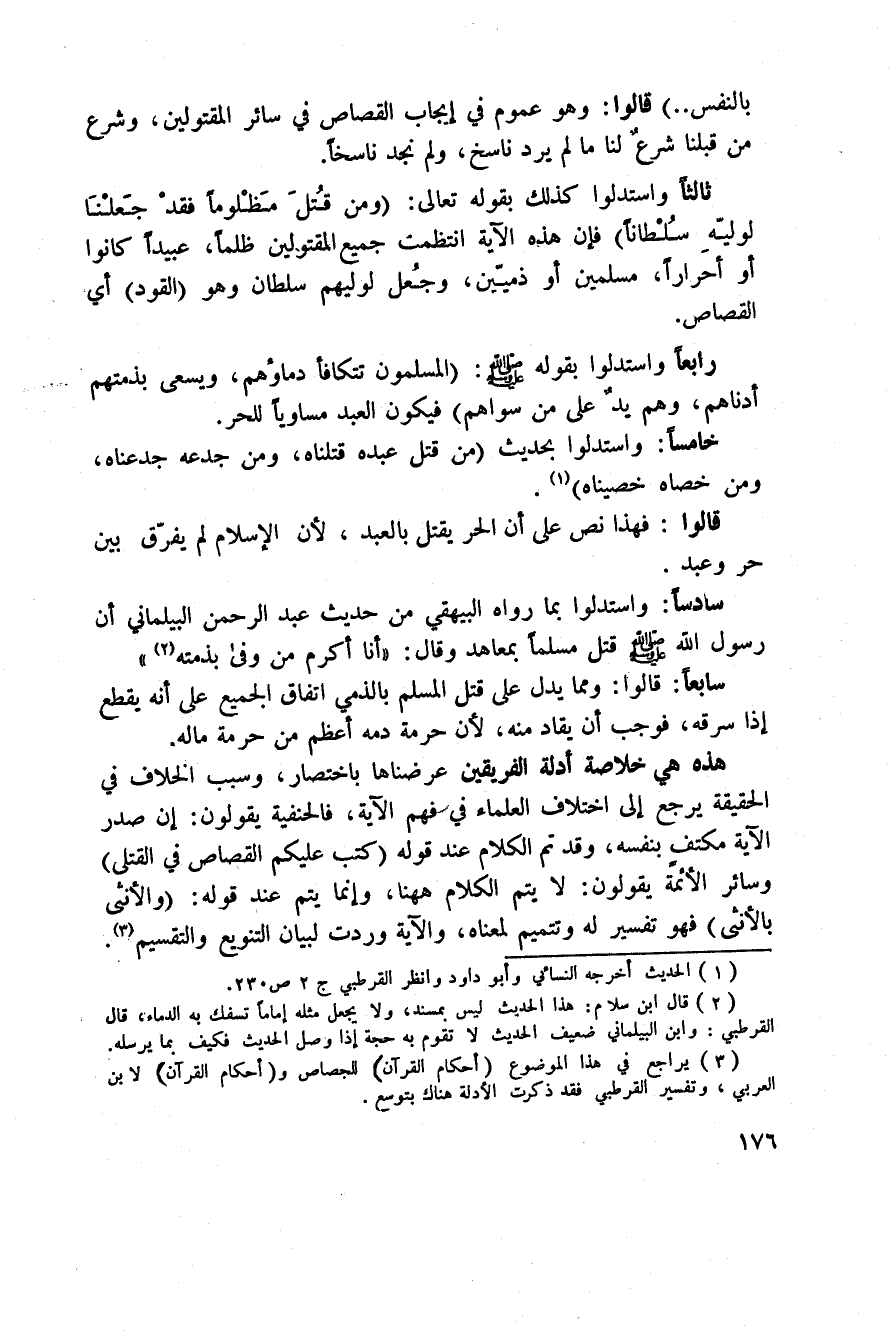 بالنفس..) قالوا: وهو عموم في إيجاب القصاص في سائر المقتولين، وشرع
من قبلنا شرعٌ لنا ما لم يرد ناسخ، ولم نجد ناسخاً.
ثالثاً واستدلوا كذلك بقوله تعالى: (ومن قُتلَ مَظْلوماً فقدْ جَعلْنَا
لوليّه سُلْطاناً) فإن هذه الآية انتظمت جميع المقتولين ظلماً، عبيداً كانوا
أو أحراراً، مسلمين أو ذميّين، وجُعل لوليهم سلطان وهو (القود) أي
القصاص.
رابعاً واستدلوا بقوله ﷺ: (المسلمون تتكافأ دماؤهم، ويسعى بذمتهم
أدناهم، وهم يدٌ على من سواهم) فيكون العبد مساوياً للحر.
خامساً: واستدلوا بحديث (من قتل عبده قتلناه، ومن جدعه جدعناه،
ومن خصاه خصيناه)(١) .
قالوا : فهذا نص على أن الحر يقتل بالعبد ، لأن الإسلام لم يفرّق بين
حر وعبد .
سادساً: واستدلوا بما رواه البيهقي من حديث عبد الرحمن البيلماني أن
رسول الله ﷺ قتل مسلماً بمعاهد وقال: «أنا أكرم من وفىٰ بذمته(٢) »
سابعاً: قالوا: ومما يدل على قتل المسلم بالذمي اتفاق الجميع على أنه يقطع
إذا سرقه، فوجب أن يقاد منه، لأن حرمة دمه أعظم من حرمة ماله.
هذه هي خلاصة أدلة الفريقين عرضناها باختصار، وسبب الخلاف في
الحقيقة يرجع إلى اختلاف العلماء في فهم الآية، فالحنفية يقولون: إن صدر
الآية مكتفٍ بنفسه، وقد تم الكلام عند قوله (كتب عليكم القصاص في القتلى)
وسائر الأئمة يقولون: لا يتم الكلام ههنا، وإنما يتم عند قوله: (والأنثى
بالأنثى) فهو تفسير له وتتميم لمعناه، والآية وردت لبيان التنويع والتقسيم(٣).
(١) الحديث أخرجه النسائي وأبو داود وانظر القرطبي ج ٢ ص٢٣٠.
(٢) قال ابن سلام: هذا الحديث ليس بمسند، ولا يجعل مثله إماماً تسفك به الدماء، قال
القرطبي : وابن البيلماني ضعيف الحديث لا تقوم به حجة إذا وصل الحديث فكيف بما يرسله.
(٣) يراجع في هذا الموضوع (أحكام القرآن) للجصاص و(أحكام القرآن) لابن
العربي ، وتفسير القرطبي فقد ذكرت الأدلة هناك بتوسع .
١٧٦